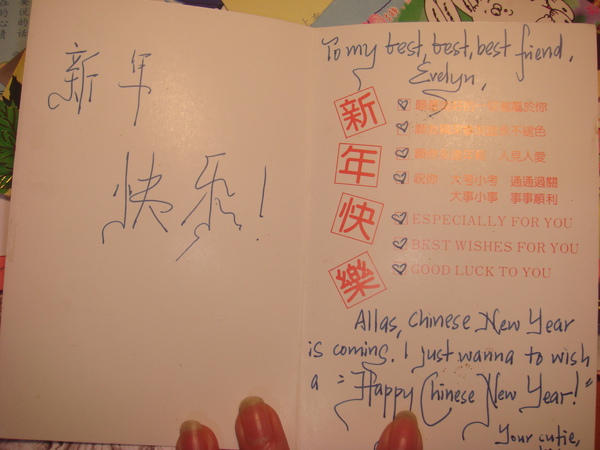 新年
快乐!
To my best, best, best friend,
Evelyn,
新
年
快
樂
人見人愛
祝你 大考小考 通通過關
大事小事 事事順利
ESPECIALLY FOR YOU
BEST WISHES FOR YOU
GOOD LUCK TO YOU
Allas, Chinese New Year
is coming. I just wanna to wish
a "Happy Chinese New Year!"
Your cutie,